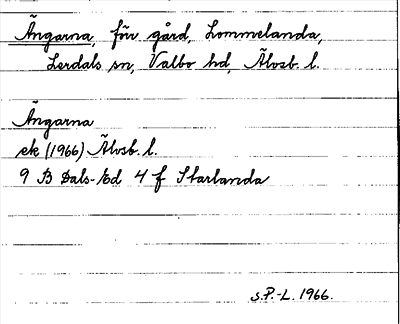 Ängarna, förr gård, Lommelanda,
Lerdals sn, Valbo hd, Älvsb. l.
Ängarna
ek (1966) Älvsb. l.
9 B Dals-Ed 4 f Starlanda
S.P.-L. 1966.